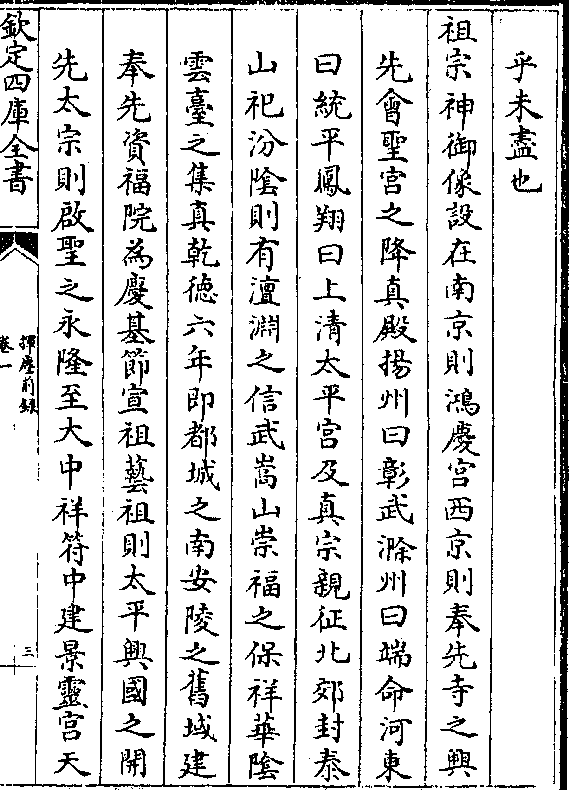 乎未盡也
祖宗神御像設在南京則鴻慶宮西京則奉先寺之興
先會聖宮之降真殿揚州曰彰武滁州曰端命河東
曰統平鳳翔曰上清太平宮及真宗親征北郊封泰
山祀汾陰則有澶淵之信武嵩山崇福之保祥華陰
雲臺之集真乾德六年即都城之南安陵之舊城建
奉先資福院為慶基節宣祖藝祖則太平興國之開
先太宗則啟聖之永隆至大中祥符中建景靈宮天
欽定四庫全書
揮麈前錄
卷一
三